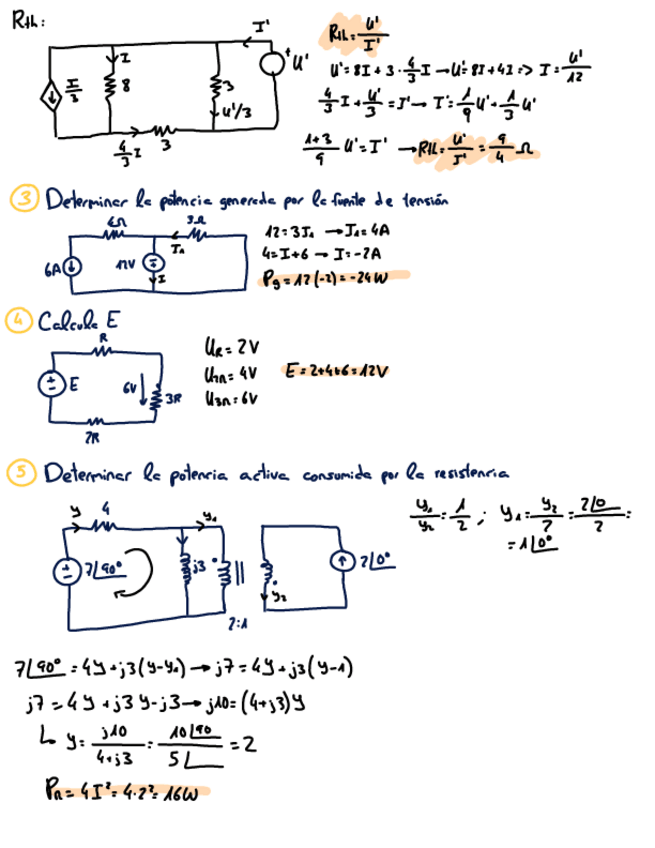 Rth:
I'
I
I/3
8
3
+ U'
U'/3
4/3 I
3
Rth = U'/I'
U' = 8I + 3 · 4/3 I → U' = 8I + 4I => I = U'/12
4/3 I + U'/3 = I' → I' = 1/9 U' + 1/3 U'
1+3/9 U' = I' → Rth = U'/I' = 9/4 Ω
3 Determinar la potencia generada por la fuente de tensión
6Ω
3Ω
I1
6A
12V
I
12 = 3I1 → I1 = 4A
4 = I + 6 → I = -2A
Pg = 12(-2) = -24W
4 Calcula E
R
E
6V
3R
2R
UR = 2V
U2R = 4V
U3R = 6V
E = 2+4+6 = 12V
5 Determinar la potencia activa consumida por la resistencia
y
4
y1
7∟90°
j3
2∟0°
y2
2:1
y1/y2 = 1/2 ; y1 = y2/2 = 2∟0/2 =
= 1∟0°
7∟90° = 4y + j3(y-y1) → j7 = 4y + j3(y-1)
j7 = 4y + j3y - j3 → j10 = (4+j3)y
y = j10/4+j3 = 10∟90/5∟ = 2
PR = 4I² = 4·2² = 16W